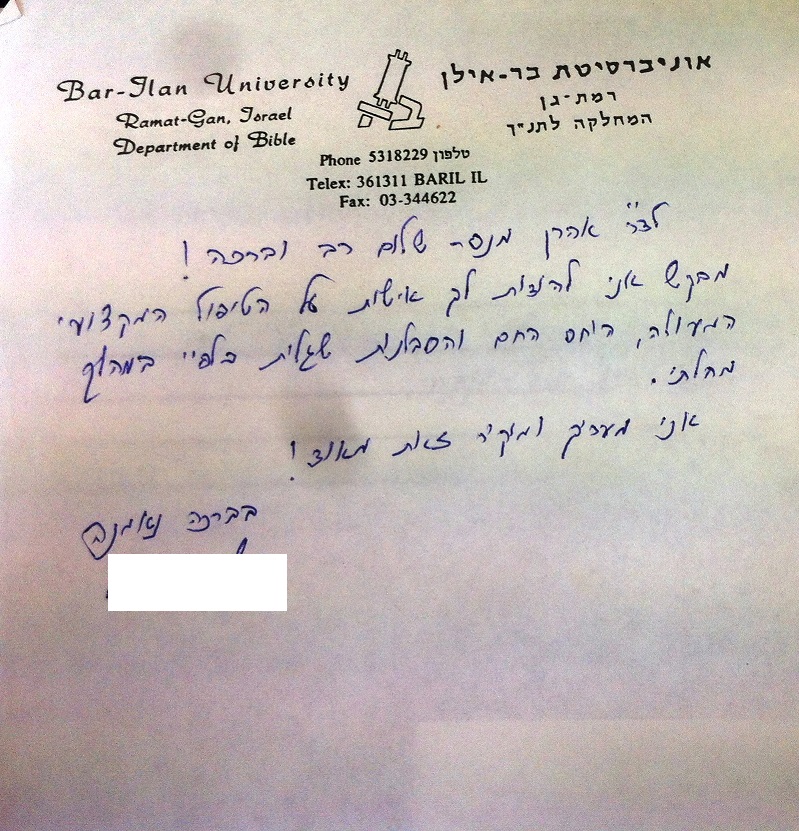 Bar-Ilan University
Ramat-Gan, Israel
Department of Bible
אוניברסיטת בר-אילן
רמת-גן
המחלקה לתנ״ך
Phone 5318229 טלפון
Telex: 361311 BARIL IL
Fax: 03-344622
לד״ר אהרן מנסר שלום רב וברכה!
מבקש אני להודות לך אישית על הטיפול המקצועי
המעולה, היחס החם והסבלנות שגלית כלפיי במהלך
מחלתי.
אני מעריך ומוקיר זאת מאוד!
בברכה נאמנה